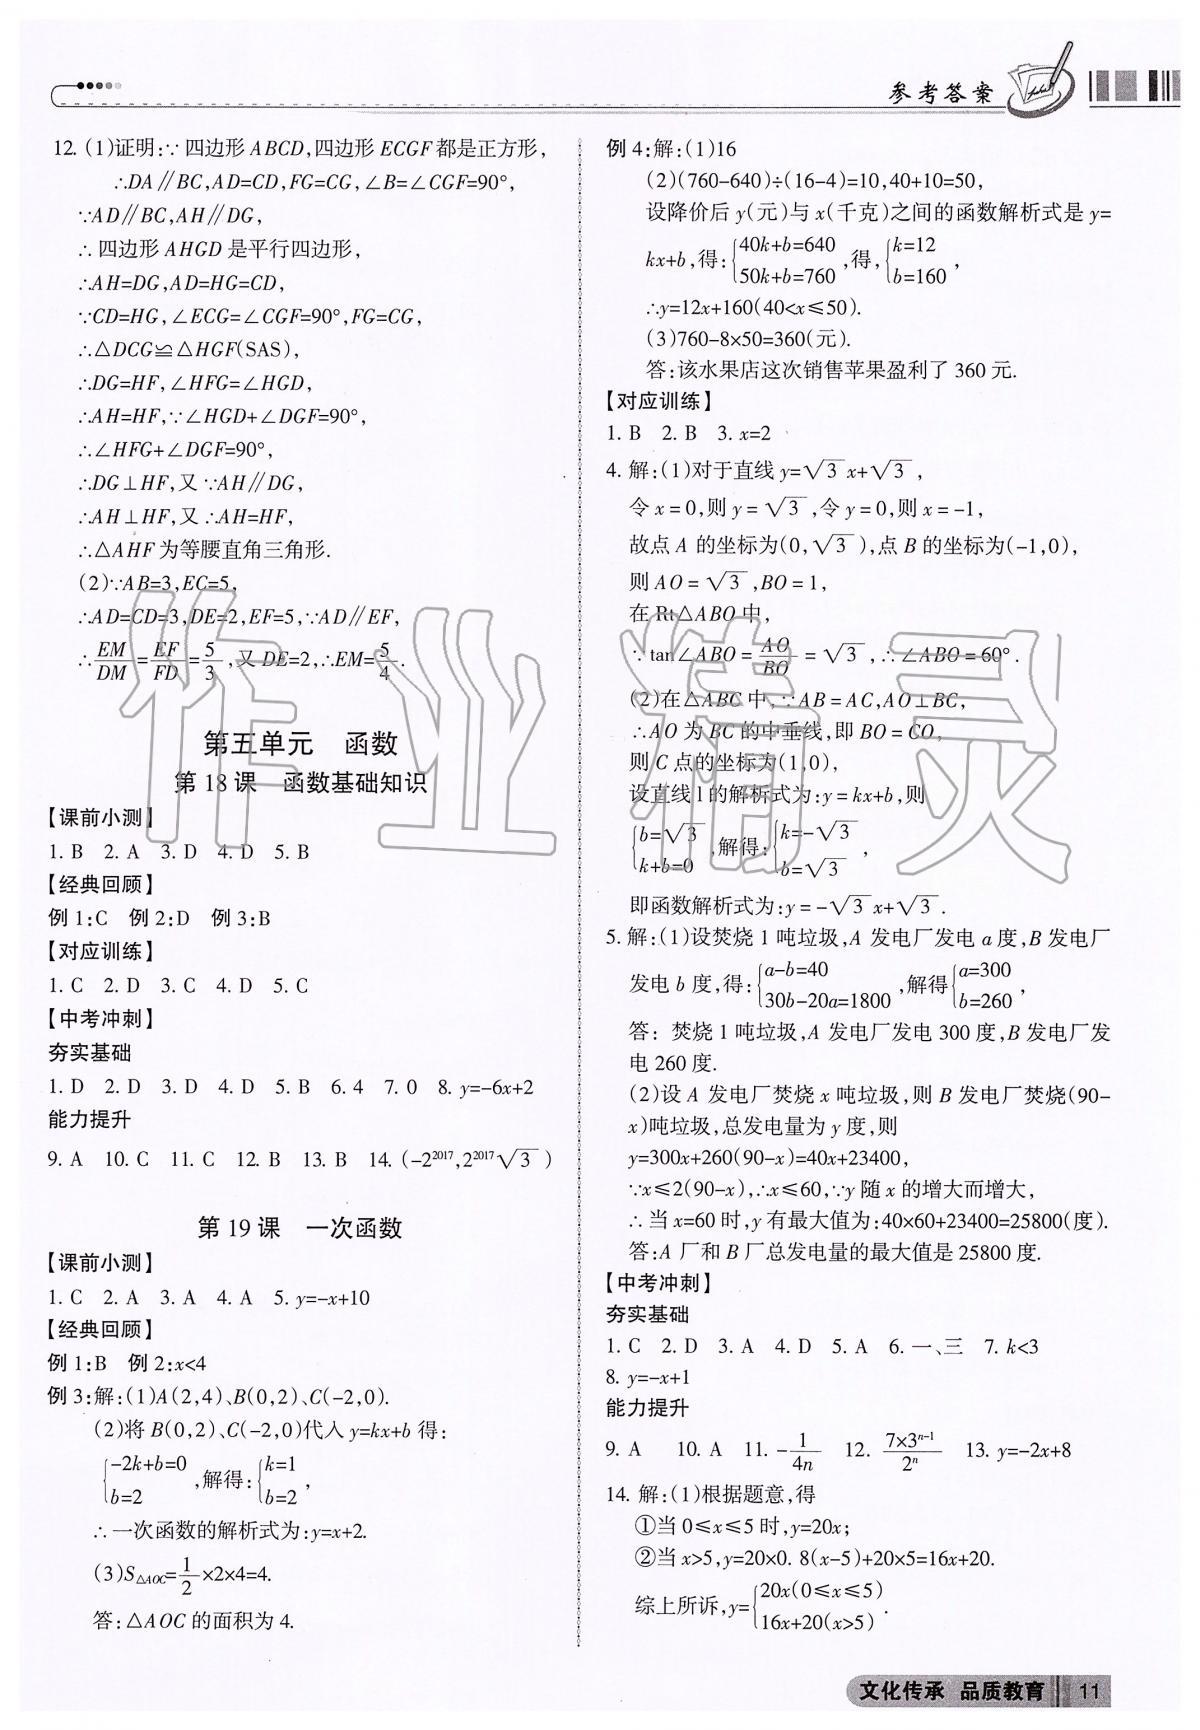 参考答案
12. (1)证明:∵ 四边形 ABCD,四边形 ECGF 都是正方形,
∴DA∥BC,AD=CD,FG=CG,∠B=∠CGF=90°,
∵AD∥BC,AH∥DG,
∴ 四边形 AHGD 是平行四边形,
∴AH=DG,AD=HG=CD,
∵CD=HG,∠ECG=∠CGF=90°,FG=CG,
∴△DCG≌△HGF(SAS),
∴DG=HF,∠HFG=∠HGD,
∴AH=HF,∵∠HGD+∠DGF=90°,
∴∠HFG+∠DGF=90°,
∴DG⊥HF,又∵AH∥DG,
∴AH⊥HF,又∴AH=HF,
∴△AHF 为等腰直角三角形.
(2)∵AB=3,EC=5,
∴AD=CD=3,DE=2,EF=5,∵AD∥EF,
∴EM/DM=EF/FD=5/3,又 DE=2,∴EM=5/4.
第五单元 函数
第 18 课 函数基础知识
【课前小测】
1. B 2. A 3. D 4. D 5. B
【经典回顾】
例 1:C 例 2:D 例 3:B
【对应训练】
1. C 2. D 3. C 4. D 5. C
【中考冲刺】
夯实基础
1. D 2. D 3. D 4. D 5. B 6. 4 7. 0 8. y=-6x+2
能力提升
9. A 10. C 11. C 12. B 13. B 14. (-2²⁰¹⁷,2²⁰¹⁷√3)
第 19 课 一次函数
【课前小测】
1. C 2. A 3. A 4. A 5. y=-x+10
【经典回顾】
例 1:B 例 2:x<4
例 3:解:(1)A(2,4)、B(0,2)、C(-2,0).
(2)将 B(0,2)、C(-2,0)代入 y=kx+b 得:
{-2k+b=0 b=2 ,解得:{k=1 b=2 ,
∴ 一次函数的解析式为:y=x+2.
(3)S△AOC=1/2×2×4=4.
答:△AOC 的面积为 4.
例 4:解:(1)16
(2)(760-640)÷(16-4)=10,40+10=50,
设降价后 y(元)与 x(千克)之间的函数解析式是 y=
kx+b,得:{40k+b=640 50k+b=760 ,得,{k=12 b=160 ,
∴y=12x+160(40<x≤50).
(3)760-8×50=360(元).
答:该水果店这次销售苹果盈利了 360 元.
【对应训练】
1. B 2. B 3. x=2
4. 解:(1)对于直线 y=√3x+√3,
令 x=0,则 y=√3,令 y=0,则 x=-1,
故点 A 的坐标为(0,√3),点 B 的坐标为(-1,0),
则 AO=√3,BO=1,
在 Rt△ABO 中,
∵tan∠ABO=AO/BO=√3,∴∠ABO=60°.
(2)在△ABC 中,∵AB=AC,AO⊥BC,
∴AO 为 BC 的中垂线,即 BO=CO,
则 C 点的坐标为(1,0),
设直线 l 的解析式为:y=kx+b,则
{b=√3 k+b=0 ,解得:{k=-√3 b=√3 ,
即函数解析式为:y=-√3x+√3.
5. 解:(1)设焚烧 1 吨垃圾,A 发电厂发电 a 度,B 发电厂
发电 b 度,得:{a-b=40 30b-20a=1800 ,解得{a=300 b=260 ,
答: 焚烧 1 吨垃圾,A 发电厂发电 300 度,B 发电厂发
电 260 度.
(2)设 A 发电厂焚烧 x 吨垃圾,则 B 发电厂焚烧(90-
x)吨垃圾,总发电量为 y 度,则
y=300x+260(90-x)=40x+23400,
∵x≤2(90-x),∴x≤60,∵y 随 x 的增大而增大,
∴ 当 x=60 时,y 有最大值为:40×60+23400=25800(度).
答:A 厂和 B 厂总发电量的最大值是 25800 度.
【中考冲刺】
夯实基础
1. C 2. D 3. A 4. D 5. A 6. 一、三 7. k<3
8. y=-x+1
能力提升
9. A 10. A 11. -1/4n 12. 7×3ⁿ⁻¹/2ⁿ 13. y=-2x+8
14. 解:(1)根据题意,得
①当 0≤x≤5 时,y=20x;
②当 x>5,y=20×0. 8(x-5)+20×5=16x+20.
综上所诉,y={20x(0≤x≤5) 16x+20(x>5) .
文化传承 品质教育 11
作业精灵